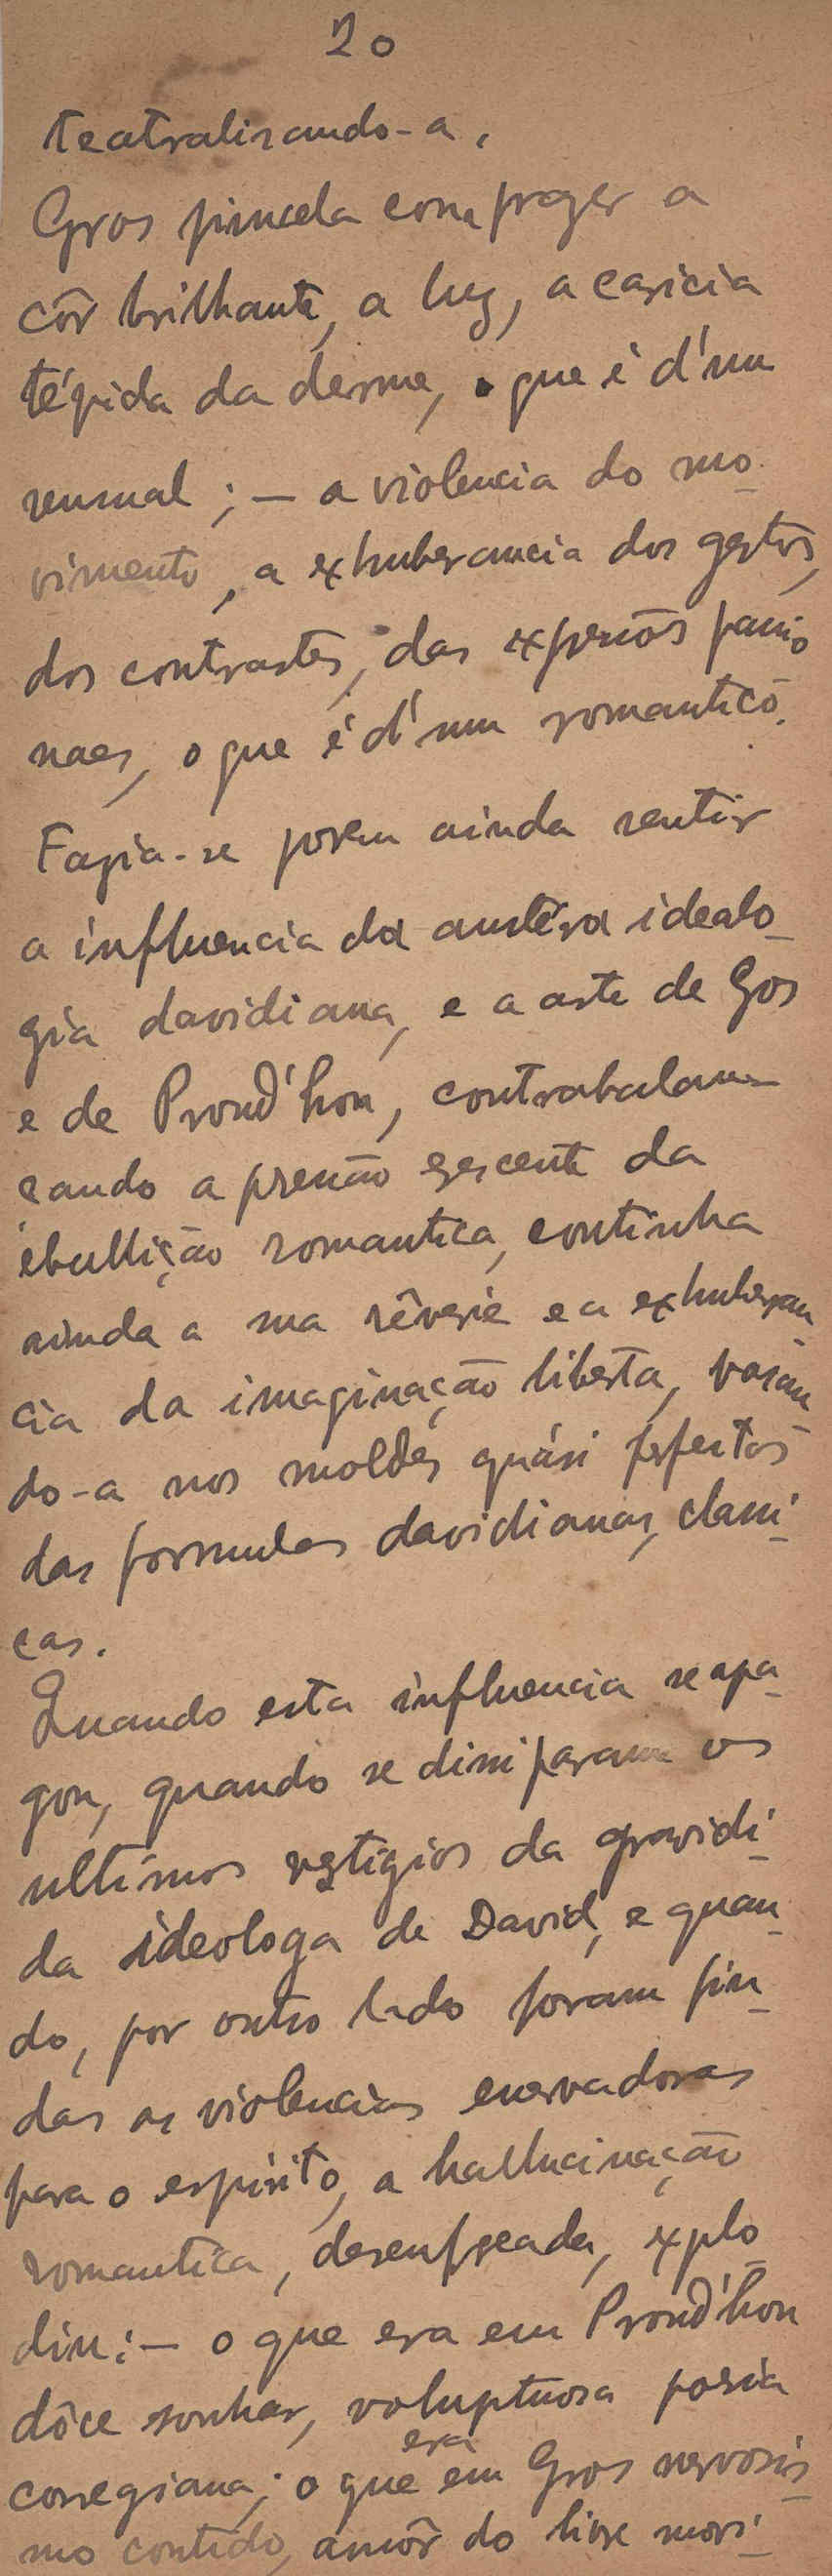 20
teatralisando-a.
Gros pincela com prazer a
côr brilhante, a luz, a caricia
tépida da derme, o que é d'um
sensual; — a violencia do mo-
vimento, a exhuberancia dos gestos,
dos contrastes, das expressões passio
naes, o que é d'um romantico.
Fazia-se porem ainda sentir
a influencia da austéra idealo-
gia davidiana, e a arte de Gros
e de Proud'hon, contrabalan-
çando a pressão crescente da
ebullição romantica, continha
ainda a sua rêverie e a exhuberan-
cia da imaginação liberta, vasan-
do-a nos moldes quási perfeitos
das formulas davidianas, classi-
cas.
Quando esta influencia se apa-
gou, quando se dissiparam os
ultimos vestigios da
da ideologa de David, e quan-
do, por outro lado foram fin-
das as violencias enervadoras
para o espirito, a hallucinação
romantica, desenfreada, explo-
diu: — o que era em Proud'hon
dôce sonhar, voluptuosa poesia
corregiana; o que era em Gros nervosis-
mo contido, amôr do livre movi-